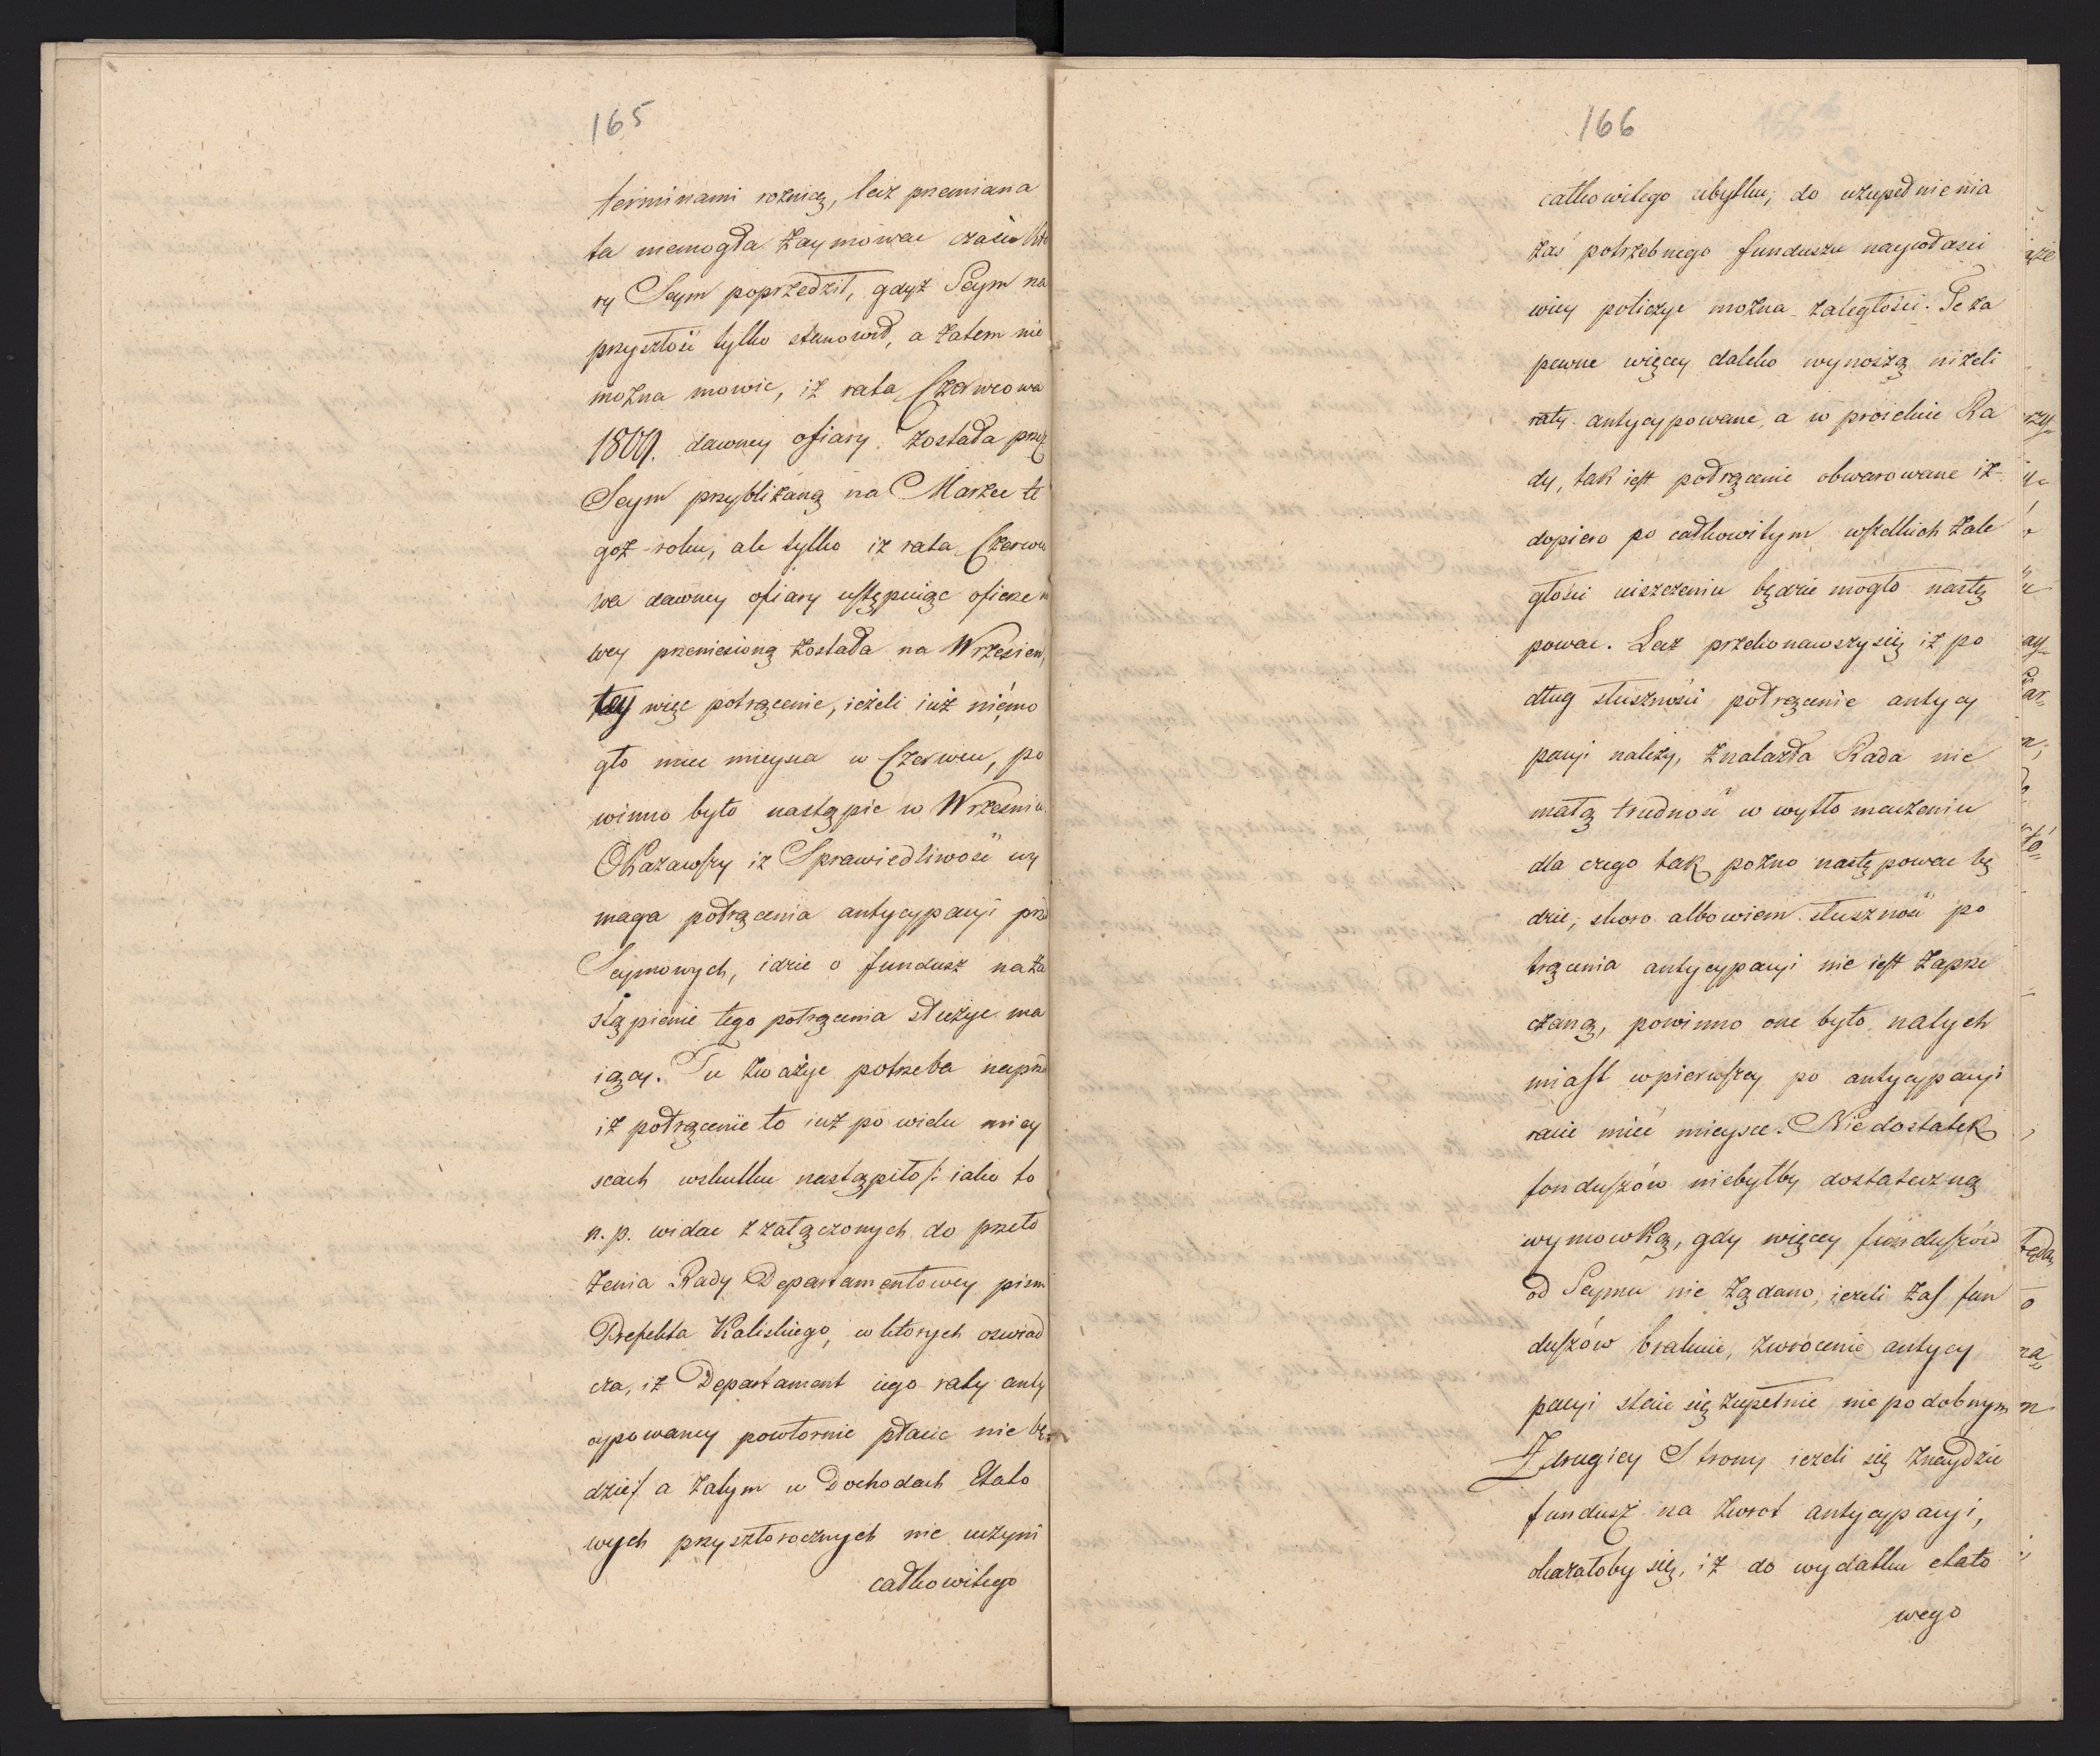 165
terminami rożnicą, lecz przemiana
ta niemogła zaymować czasu któ
ry Seym poprzedził, gdyż Seym na
przyszłość tylko stanowił, a zatem nie
można mowic, iż rata Czerwcowa
1809. dawney ofiary została przez
Seym przybliżaną na Marzec te
goż roku, ale tylko iż rata Czerwco
wa dawney ofiary ustępuiąc ofierze no
wey przeniesioną została na Wrzesień,
tey więc potrącenie, ieżeli iuż niemo
gło miec mieysca w Czerwcu, po
winno było nastąpic w Wrześniu.
Okazawszy iż Sprawiedliwość wy
maga potrącenia antycypacyi przed
Seymowych, idzie o fundusz na za
stąpienie tego potrącenia służyć ma
iący. Tu zważyc potrzeba naprzód
iż potrącenie to iuż po wielu miey
scach wskutku nastąpiło /: iako to
n. p. widac z załączonych do przeło
żenia Rady Departamentowey pism
Prefekta Kaliskiego, w ktorych oswiad
cza, iż Departament iego raty anty
cypowaney powtornie płacic nie bę=
dzie :/ a zatym w Dochodach Etato
wych przyszłorocznych nie uczyni
całkowitego
166
całkowitego ubytku; do uzupełnienia
zaś potrzebnego funduszu naywłasci
wiey policzyc można zaległości. Te za
pewne więcey daleko wynoszą niżeli
raty antycypowane, a w prośbie Ra
dy, tak iest potrącenie obwarowane iż
dopiero po całkowitym wszelkich zale
głości uiszczeniu będzie mogło nastę
powac. Lecz przekonawszy się iż po
dług słuszności potrącenie antycy
pacyi należy, znalazła Rada nie
małą trudność w wytłomaczeniu
dla czego tak pozno następowac bę
dzie, skoro albowiem słuszność po
trącenia antycypacyi nie iest zaprze
czaną, powinno one było natych
miast wpierwszey po antycypacyi
racie mieć mieysce. Niedostatek
funduszów niebyłby dostateczną
wymowką, gdy więcey funduszów
od Seymu nie żądano, ieżeli zaś fun
duszów brakuie, zwrócenie antycy
pacyi staie się zupełnie niepodobnym
Z drugiey Strony ieżeli się znaydzie
fundusz na zwrot antycypacyi,
okazałoby się, iż do wydatku etato
wego